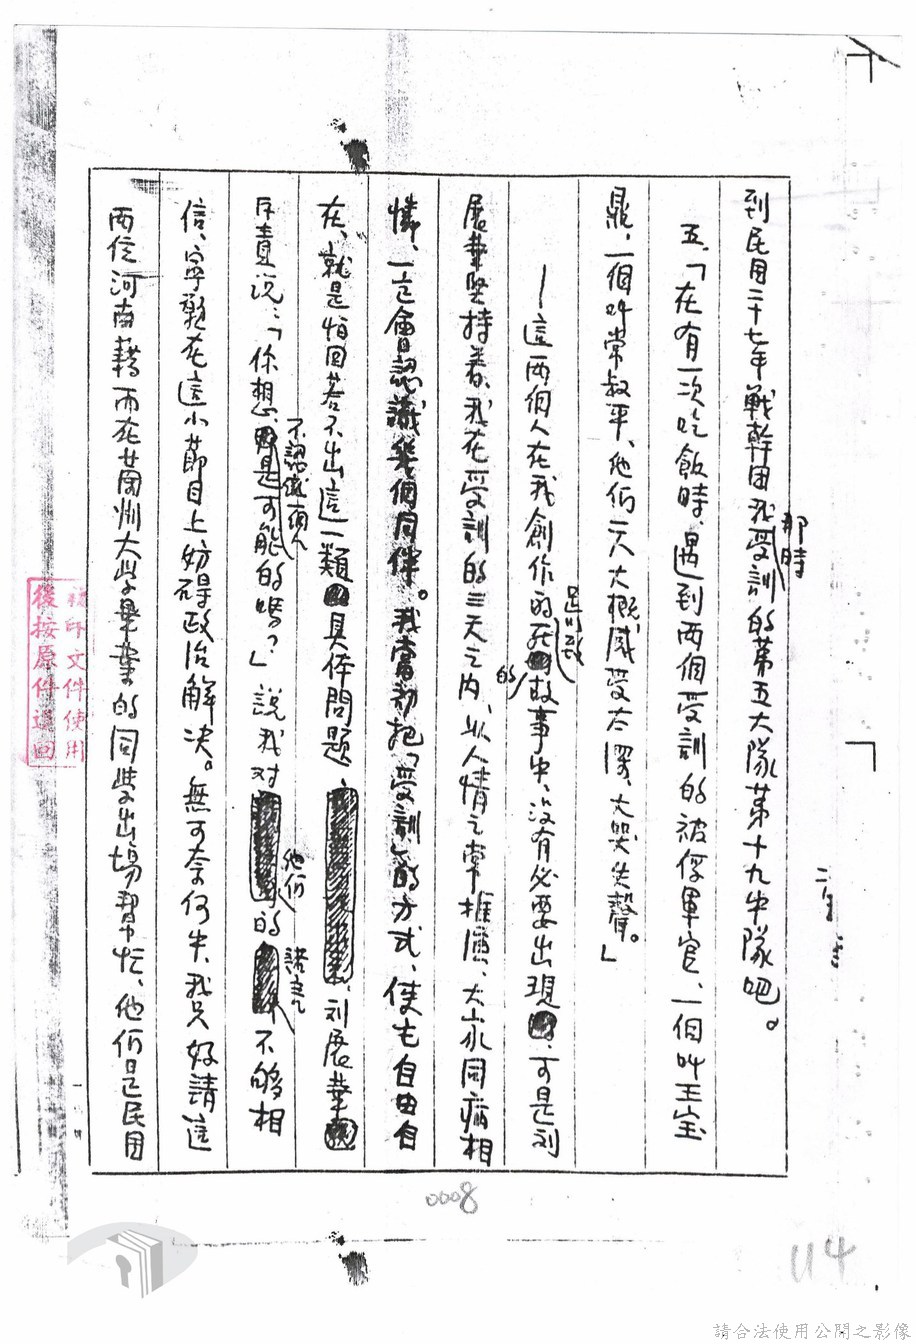 到民国二十七年戰幹团我受訓那時的第五大隊第十九中隊吧。
五、「在有一次吃飯時、遇到两個受訓的被俘軍官、一個叫王宝
鼎、一個叫常叔平、他们二人大概感受太深、大哭失聲。」
—這两個人在我創作的所謂故事中、没有必要出現、可是刘
展華堅持着、我在受訓的三天之内、以人情之常推演、大山水同病相
憐、一定會認識幾個同伴。我當初把「受訓」的方式、使之自由自
在、就是怕回答不出這一類具体問題、刘展華
斥責说：「你想、不認識两個人是可能的嗎？」說我对他们的諾言不够相
信、寧願在這小節目上妨碍政治解决。無可奈何中、我只好請這
两位河南籍而在蘭州大學畢業的同學出場幫忙、他们是民国
0008
114
複印文件使用
後按原件退回
請合法使用公開之影像